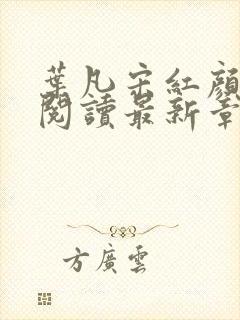 葉凡宋紅顏
閱讀最新章
方廣雲